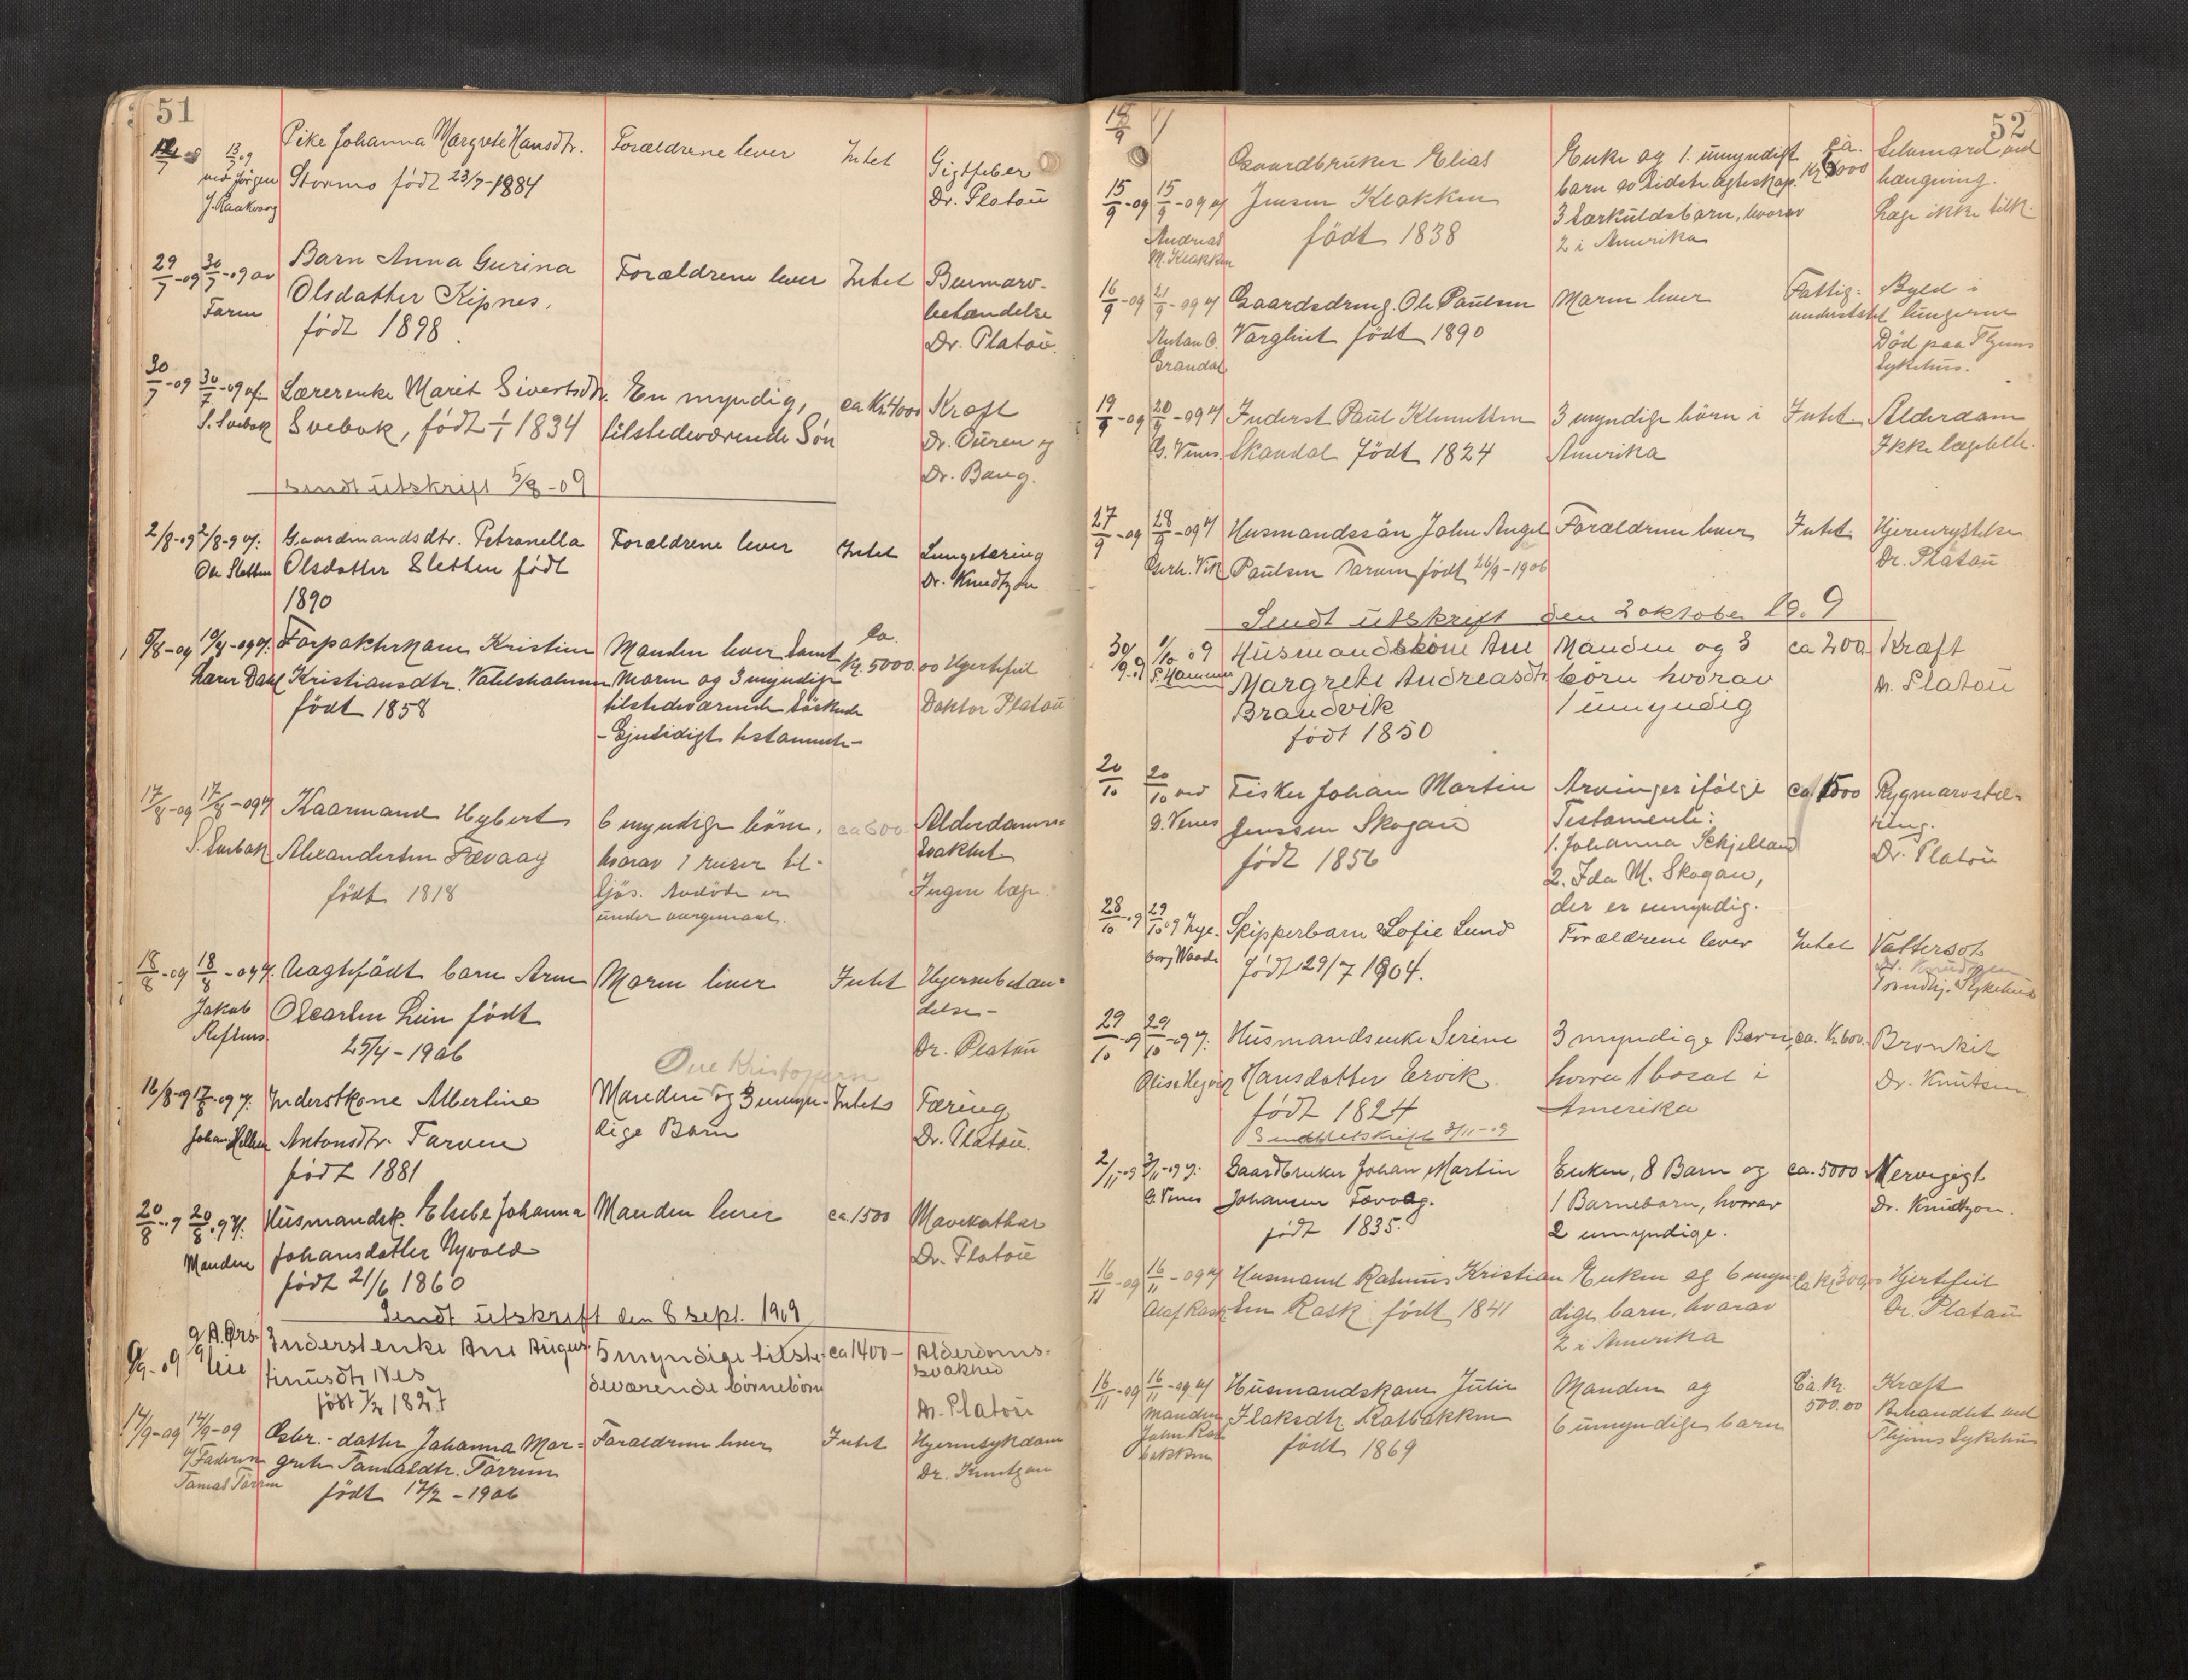 51
13/7 09
ved Jørgen
J. Raakvaag
Pike Johanna Margrete Hansdtr.
Stormo født 23/7-1884
Forældrene lever
Intet
Gigtfeber
Dr. Platou
29/7-09 30/7-09 av
Faren
Barn Anna Gurina
Olsdatter Ripnes.
født 1898.
Forældrene lever
Intet
Benmarv-
betændelse
Dr. Platou.
30/7-09 30/7-09 af
S. Svebak
Lærerenke Marit Sivertsdtr.
Svebak, født 1/1 1834
En myndig,
tilstedeværende Søn
ca Kr. 4000
Kræft
Dr. Ouren og
Dr. Bang.
Sendt utskrift 3/8-09
2/8-09 2/8-9 af:
Ole Sletten
Gaardmandsdtr. Petranella
Olsdatter Sletten født
1890
Forældrene lever
Intet
Lungetæring
Dr. Knudtzon
Lærer Dahl
Forpakterkone Kristine
Kristiansdtr.
født 1858
Manden lever samt
Moren og 3 myndige
tilstedeværende Søskende
ca.
Kr. 5000.00
Hjertefeil
Doktor Platou
17/8-09 17/8-09 af
S. Svebak
Kaarmand Hybert
Alexandersen Fævaag
født 1818
6 myndige børn,
hvorav 1 reiser til-
sjøs. Avdøde er
ca 600
Alderdoms-
svakhet
Ingen læge.
18/8-09 18/8-09 af.
Jakob
Uægtefødt barn Arne
Oscarsen Lein født
25/4-1906
Moren lever
Intet
Hjernebetæn-
delse-
Dr. Platou
16/8-09 17/8-09 af.
Johan Hellem
Inderstkone Albertine
Antonsdtr. Farven
født 1881
Manden og 3 umyn-
dige Barn
Intet
Tæring
Dr. Platou.
20/8-9 20/8.9 af.
Manden
Husmandsk. Elsebe Johanna
Johansdatter Nyvold
født 21/6 1860
Manden lever
ca 1500
Mavekathar
Dr. Platou
Sendt utskrift den 8 sept. 1909
9/9-09
Inderstenke Ane Augus-
tinusdtr Nes
5 myndige tilste-
deværende børnebørn
ca 1400-
Alderdoms-
svakhed
Dr. Platou
14/9-09 14/9-09
af Faderen
Gsbr.-datter Johanna Mar-
grete Tomasdtr. Tørrem
født 17/2-1906
Forældrene lever
Intet
Hjernesykdom
Dr. Knutzon
52
15/9-09 15/9-09 af
Andreas
M. Klakken
Gaardbruker Elias
Jensen Klakken
født 1838
Enke og 1. umyndigt
barn av sidste ægteskap.
3 særkuldsbarn, hvorav
2 i Amerika
ca.
Selvmord ved
hængning.
Læge ikke tilk.
16/9-09 21/9-09 af
Anton O.
Grandal
Gaardsdreng. Ole Paulsen
Varghiet født 1890
Moren lever
Fattig-
understøttet
Byld i
lungerne
Død paa Thjems
sykehus.
19/9-09 20/9-09 af
G. Venes.
Inderst Paul Klemetsen
Skandal født 1824
3 myndige børn i
Amerika
Intet
Alderdom
Ikke lægebeh.
27/9-09 28/9-09 af
Gerh. Vik
Husmandssøn John Angel
Paulsen Tørrem født 26/9-1906
Forældrene lever
Intet
Hjernerystelse
Dr. Platou
Sendt utskrift den 2 oktober 19.9
30/9.9 1/10 09
P. Hammer
Husmandskone Ane
Margrete Andreasdtr
Brandvik
født 1850
Manden og 3
børn hvorav
1 umyndig
ca 200
Kræft
Dr. Platou
20/10 20/10 ved
G. Venes
Fisker Johan Martin
Jenssen Skogan
født 1856
Arvinger ifølge
Testamente:
1. Johanna Schjelland
2. Ida M. Skogan,
der er umyndig.
ca 1500
Rygmarvstæ-
ring.
Dr. Platou
28/10.9 29/10.9 Inge-
borg Waade
Skipperbarn Sofie Lund
født 29/7 1904.
Forældrene lever
Intet
Vattersot
Dr. Knudtzon
Trondhj. Sykehus
29/10-9 29/10-09 af.
Husmandsenke Serine
Hansdatter Ervik
født 1824
3 myndige Børn,
hvorav 1 bosat i
Amerika
ca. Kr. 600.
Bronkit
Dr. Knutsen
Sendt Utskrift 3/11-09
2/11-09 3/11-09 af:
G. Venes
Gaardbruker Johan Martin
Johansen Fævaag.
født 1835.
Enken, 8 Barn og
1 Barnebarn, hvorav
2 umyndige.
ca. 5000
Nervegigt
Dr. Knudtzon.
16/11-09 16/11-09 af
Olaf Rask
Husmand Rasmus Kristian-
sen Rask født 1841
Enken og 6 myn-
dige barn, hvorav
2 i Amerika
Hjertefeil
Dr. Platou
16/11-09 16/11-09 af
Manden
John Rot-
bakken
Husmandskone Julie
Flaksdtr. Rotbakken
født 1869
Manden og
6 umyndige barn
Ca. Kr.
500.00
Kræft
Behandlet ved
Thjems Sykehus